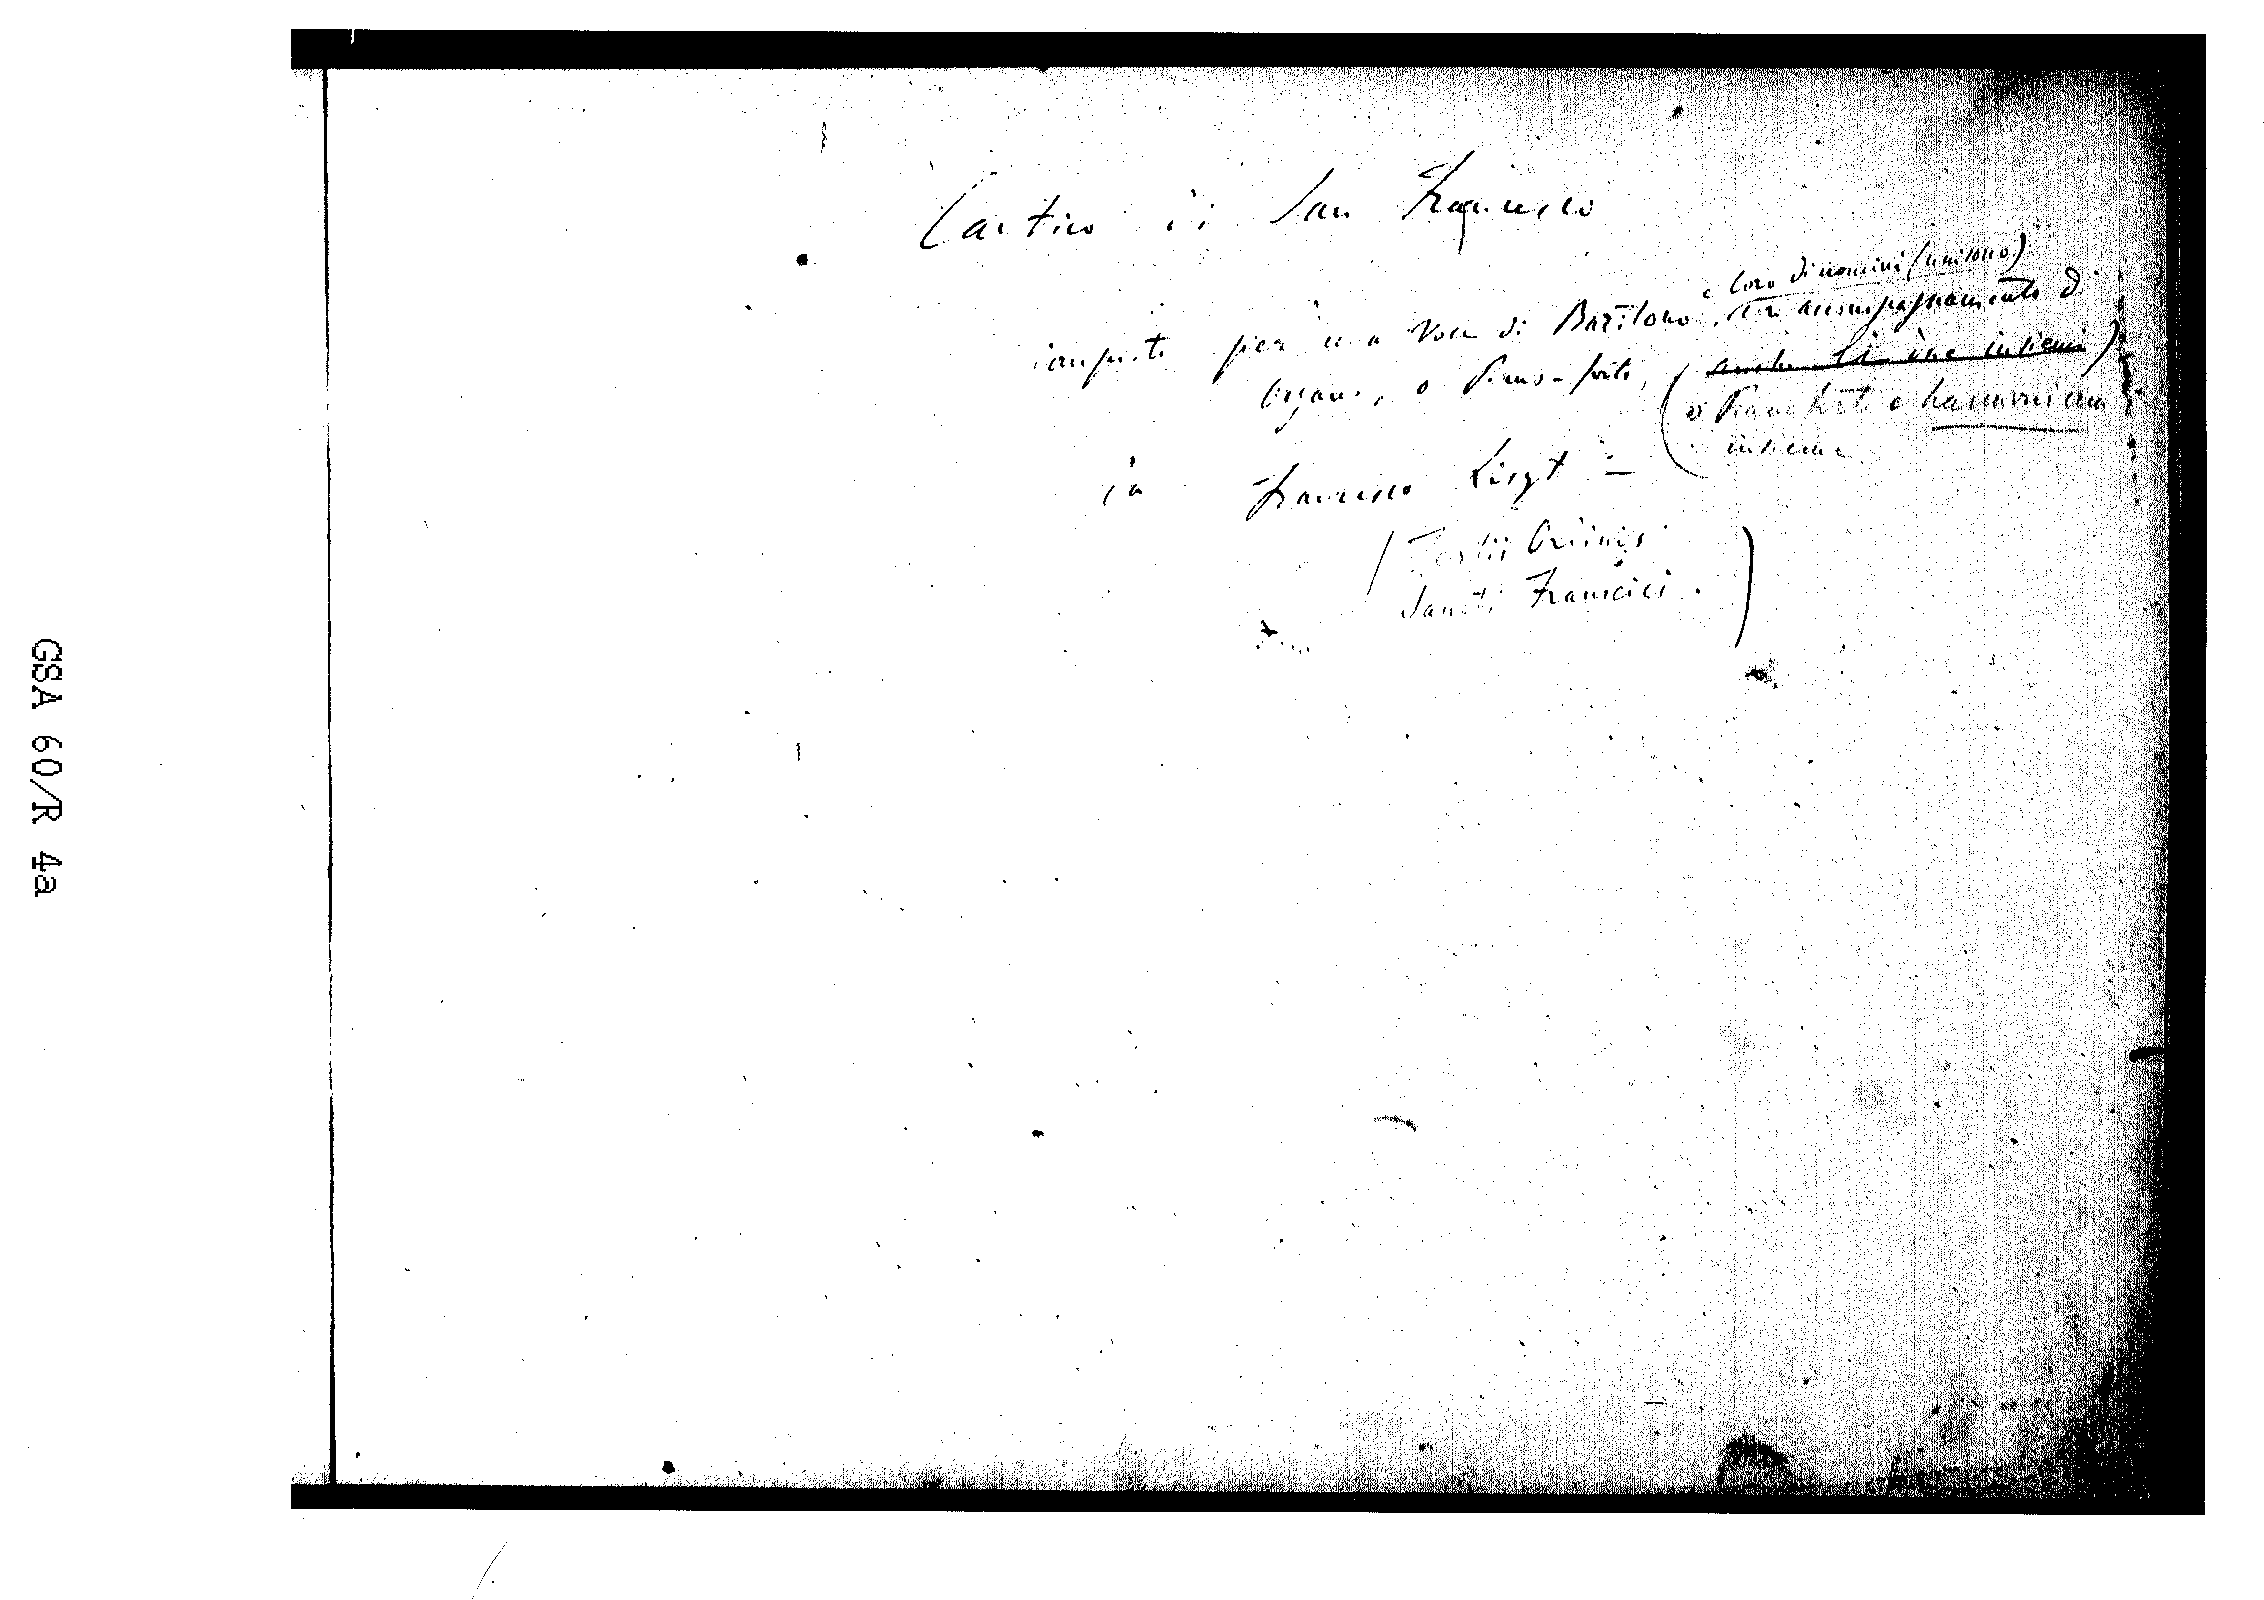 Cantico di San Francesco
e Coro di uomini (unisono)
composto per una Voce di Baritono, con accompagnamento di
Organo, o Piano-forte, (anche li due insieme)
o Piano forte e harmonium
insieme
da Francesco Liszt –
( Tertii Ordinis
Sancti Francisci. )
GSA 60/R 4a